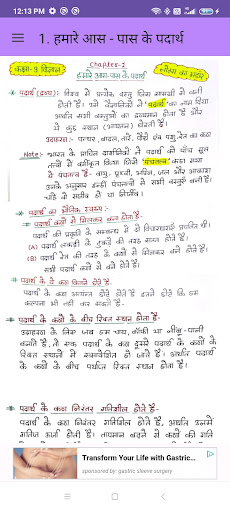 12:13 PM
1. हमारे आस - पास के पदार्थ
कक्षा-9 विज्ञान
Chapter-1
हमारे आस-पास के पदार्थ
पदार्थ (द्रव्य):- विश्व में प्रत्येक वस्तु जिस सामग्री से बनी
होती है। उसे वैज्ञानिकों ने 'पदार्थ' का नाम दिया
अर्थात सभी वस्तुओं का द्रव्यमान होता है और
वे कुछ स्थान (आयतन) घेरती हैं।
उदाहरण:- पत्थर, बादल, तारे, पौधे एवं पशु, रेत का कण
Note:- भारत के प्राचीन दार्शनिकों ने पदार्थ को पाँच मूल
तत्वों में वर्गीकृत किया जिसे 'पंचतत्व' कहा गया
ये पंचतत्व हैं- वायु, पृथ्वी, अग्नि, जल और आकाश
उनके अनुसार इन्हीं पंचतत्वों से सभी वस्तुएँ बनी हैं।
चाहे वो सजीव हो या निर्जीव।
पदार्थ का भौतिक स्वरूप:-
पदार्थ कणों से मिलकर बना होता है-
पदार्थ की प्रकृति के सम्बन्ध में दो विचारधाराएँ प्रचलित थीं।
(A) पदार्थ लकड़ी के टुकड़े की तरह सतत होते हैं।
(B) पदार्थ रेत की तरह के कणों से मिलकर बने होते हैं।
सभी पदार्थ कणों से बने होते हैं।
पदार्थ के ये कण कितने छोटे हैं-
पदार्थ के कण अत्यंत छोटे होते हैं इतने छोटे कि हम
कल्पना भी नहीं कर सकते हैं।
पदार्थ के कणों के बीच रिक्त स्थान होता है-
उदाहरण के लिए जब हम चाय, कॉफी या नींबू-पानी
बनाते हैं, तो एक पदार्थ के कण दूसरे पदार्थ के कणों के
रिक्त स्थानों में समावेशित हो जाते हैं। अर्थात पदार्थ
के कणों के बीच पर्याप्त रिक्त स्थान होता है।
पदार्थ के कण निरंतर गतिशील होते हैं-
पदार्थ के कण निरंतर गतिशील होते हैं, अर्थात उनमें
गतिज ऊर्जा होती है। तापमान बढ़ने से कणों की गति
Transform Your Life with Gastric...
sponsored by: gastric sleeve surgery